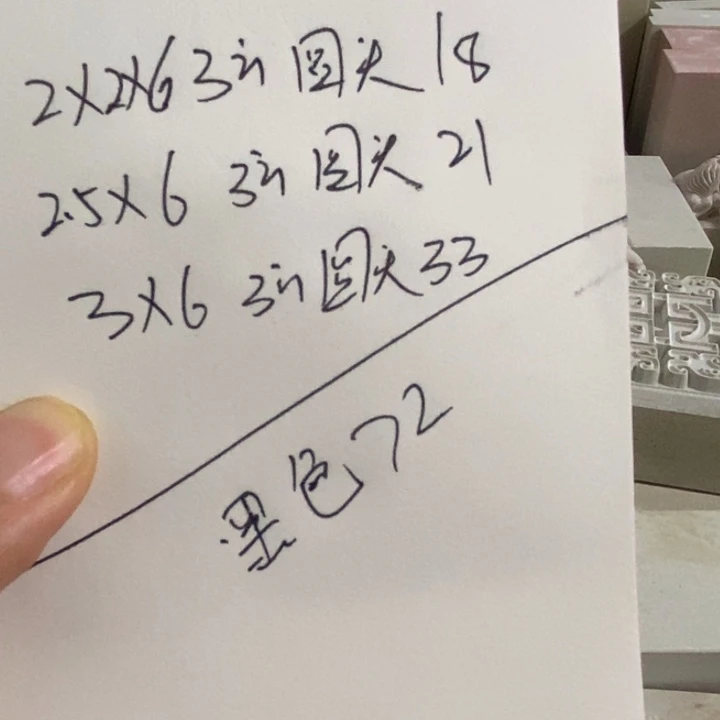 2×2×6 3分 圆头 18
2.5×6 3分 圆头 21
3×6 3分 圆头 33
黑色72